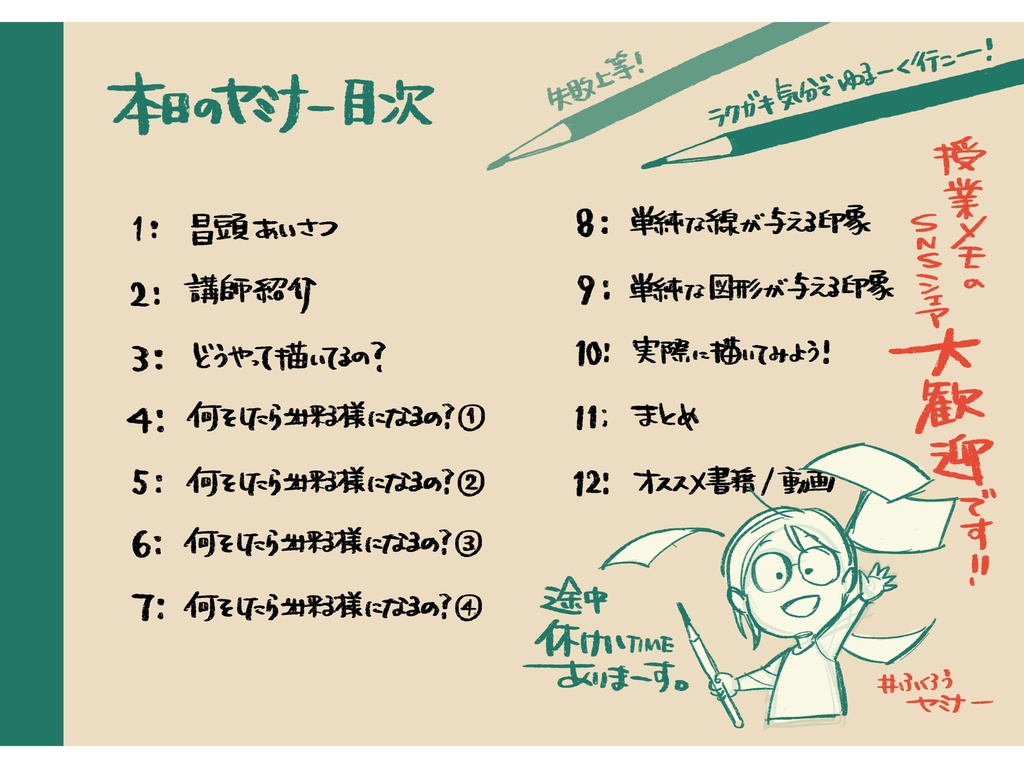 本日のセミナー目次
失敗上等!
ラクガキ気分でゆるーく行こー!
1: 冒頭あいさつ
2: 講師紹介
3: どうやって描いてるの?
4: 何をしたら出来る様になるの?①
5: 何をしたら出来る様になるの?②
6: 何をしたら出来る様になるの?③
7: 何をしたら出来る様になるの?④
8: 単純な線が与える印象
9: 単純な図形が与える印象
10: 実際に描いてみよう!
11: まとめ
12: オススメ書籍/動画
授業メモの
SNSシェア
大歓迎です!!
途中
休けいTIME
ありまーす。
#ふくろう
セミナー